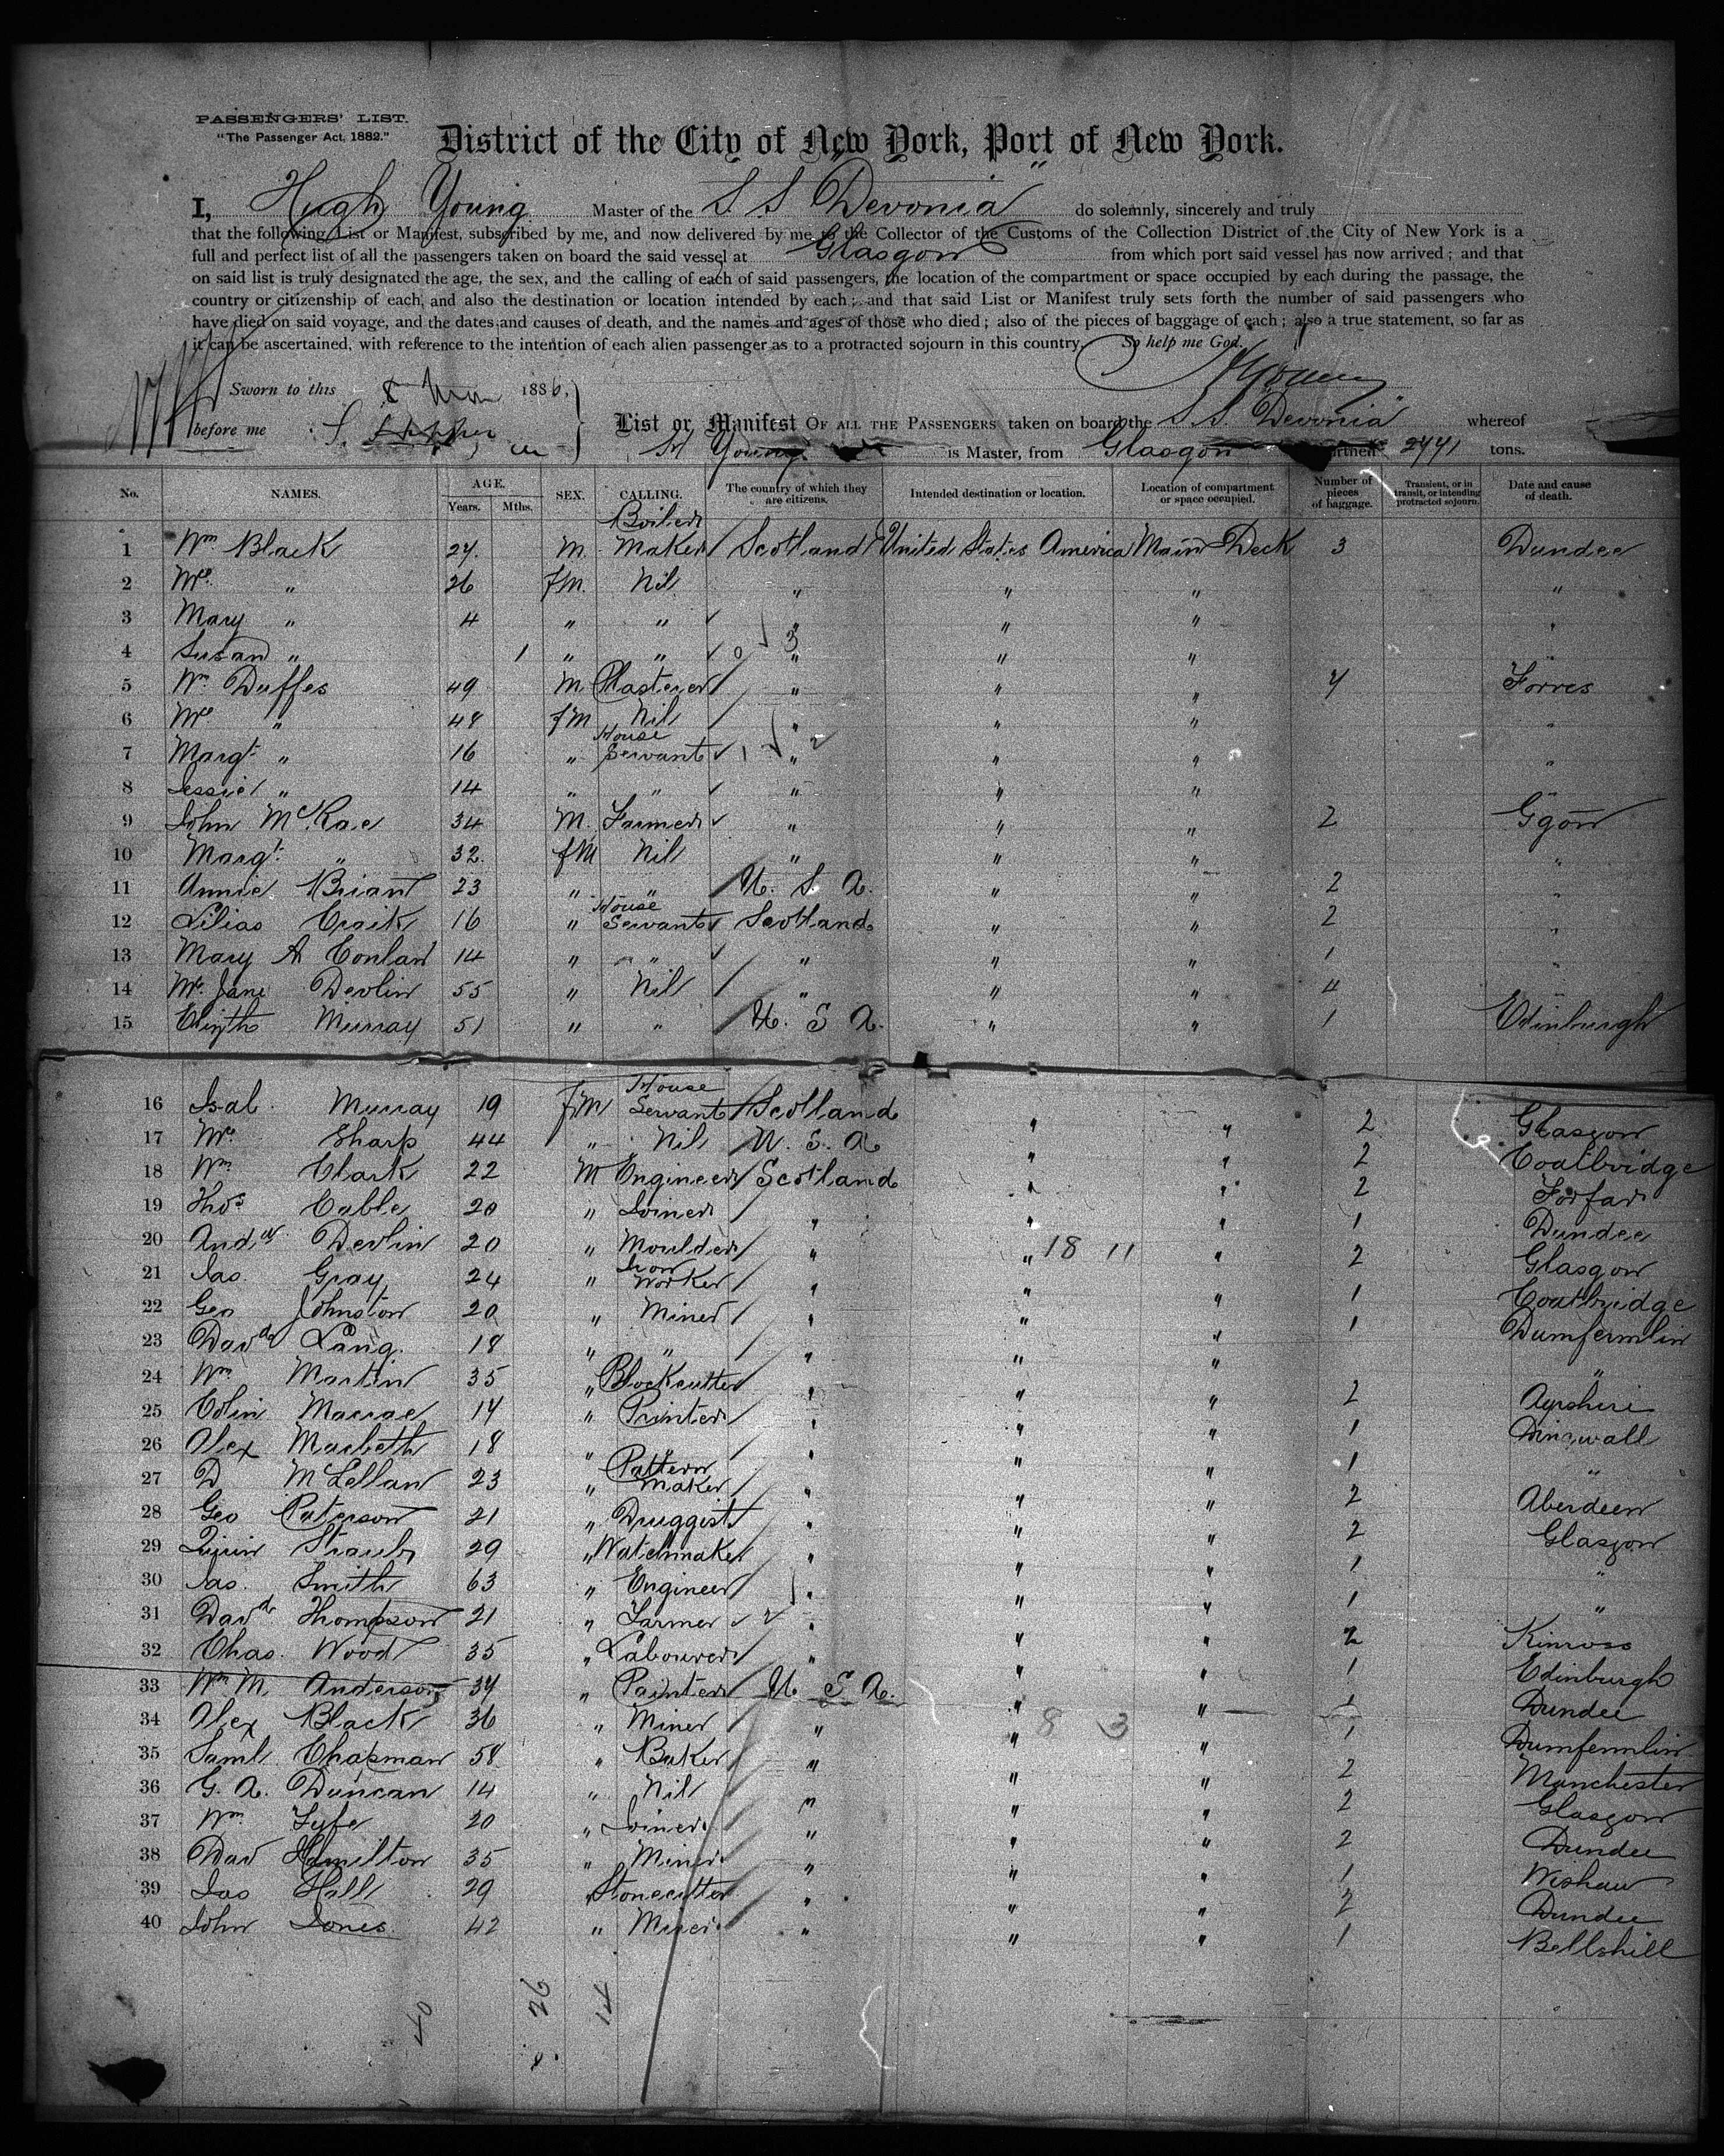 PASSENGERS' LIST.
"The Passenger Act, 1882."
District of the City of New York, Port of New York.
I, Hugh Young Master of the S. S "Devonia" do solemnly, sincerely and truly
that the following List or Manifest, subscribed by me, and now delivered by me to the Collector of the Customs of the Collection District of the City of New York is a
full and perfect list of all the passengers taken on board the said vessel at Glasgow from which port said vessel has now arrived; and that
on said list is truly designated the age, the sex, and the calling of each of said passengers, the location of the compartment or space occupied by each during the passage, the
country or citizenship of each, and also the destination or location intended by each; and that said List or Manifest truly sets forth the number of said passengers who
have died on said voyage, and the dates and causes of death, and the names and ages of those who died; also of the pieces of baggage of each; also a true statement, so far as
it can be ascertained, with reference to the intention of each alien passenger as to a protracted sojourn in this country. So help me God.
H Young
Sworn to this 8 1886,
before me
List or Manifest OF ALL THE PASSENGERS taken on board the S. S. Devonia whereof
H Young is Master, from Glasgow burthen 2441 tons.
No. NAMES. AGE. Years. Mths. SEX. CALLING. The country of which they are citizens. Intended destination or location. Location of compartment or space occupied. Number of pieces of baggage. Transient, or in transit, or intending protracted sojourn. Date and cause of death.
1 Wm Black 27 M. Boiler Maker Scotland United States America Main Deck 3 Dundee
2 Mrs " 26 fM. Nil " " " "
3 Mary " 4 " " " " " "
4 Susan " 1 " " 0 3 " " " "
5 Wm Duffes 49 M Plasterer " " " 4 Forres
6 Mrs " 48 fM Nil " " " "
7 Margt " 16 " House Servant 1 2 " " " "
8 Jessie " 14 " " " " " "
9 John McRae 34 M. Farmer " " " 2 Ggow
10 Margt " 32 fM Nil " " " "
11 Annie Briant 23 " " U. S. A. " " 2 "
12 Lilias Craik 16 " House Servant Scotland " " 2 "
13 Mary A Conlan 14 " " " " " 1 "
14 Mrs Jane Devlin 55 " Nil " " " 4 "
15 Murray 51 " " U. S A. " " 1 Edinburgh
16 Isab. Murray 19 fM House Servant Scotland " " 2 Glasgow
17 Mrs Sharp 44 " Nil U. S. A " " 2 Coatbridge
18 Wm Clark 22 M Engineer Scotland " " 2 Forfar
19 Thos Cable 20 " Joiner " " " 1 Dundee
20 Andw Devlin 20 " Moulder " " 18 11 " 2 Glasgow
21 Jas. Gray 24 " Iron Worker " " " 1 Coatbridge
22 Geo Johnston 20 " Miner " " " 1 Dumfermlin
23 Davd Lang 18 " " " " " "
24 Wm Martin 35 " Blockcutter " " " 2 Ayrshire
25 Colin Macrae 17 " Printer " " " 1 Dingwall
26 Alex Macbeth 18 " " " " 1 "
27 D McLellan 23 " Pattern Maker " " " 2 Aberdeen
28 Geo Paterson 21 " Druggist " " " 2 Glasgow
29 Straub 29 " Watchmaker " " " 1 "
30 Jas. Smith 63 " Engineer " " " 1 "
31 Davd Thompson 21 " Farmer 2 " " " 2 Kinross
32 Chas. Wood 35 " Labourer " " " 1 Edinburgh
33 Wm M. Anderson 34 " Painter U S A. " " 1 Dundee
34 Alex Black 36 " Miner " " 8 3 " 1 Dumfermlin
35 Saml. Chapman 58 " Baker " " " 2 Manchester
36 G. A. Duncan 14 " Nil " " " 2 Glasgow
37 Wm Fyfe 20 " Joiner " " " 2 Dundee
38 Dav Hamilton 35 " Miner " " " 1 Wishaw
39 Jas Hall 29 " Stonecutter " " " 2 Dundee
40 John Jones 42 " Miner " " " 1 Bellshill
40 26 14